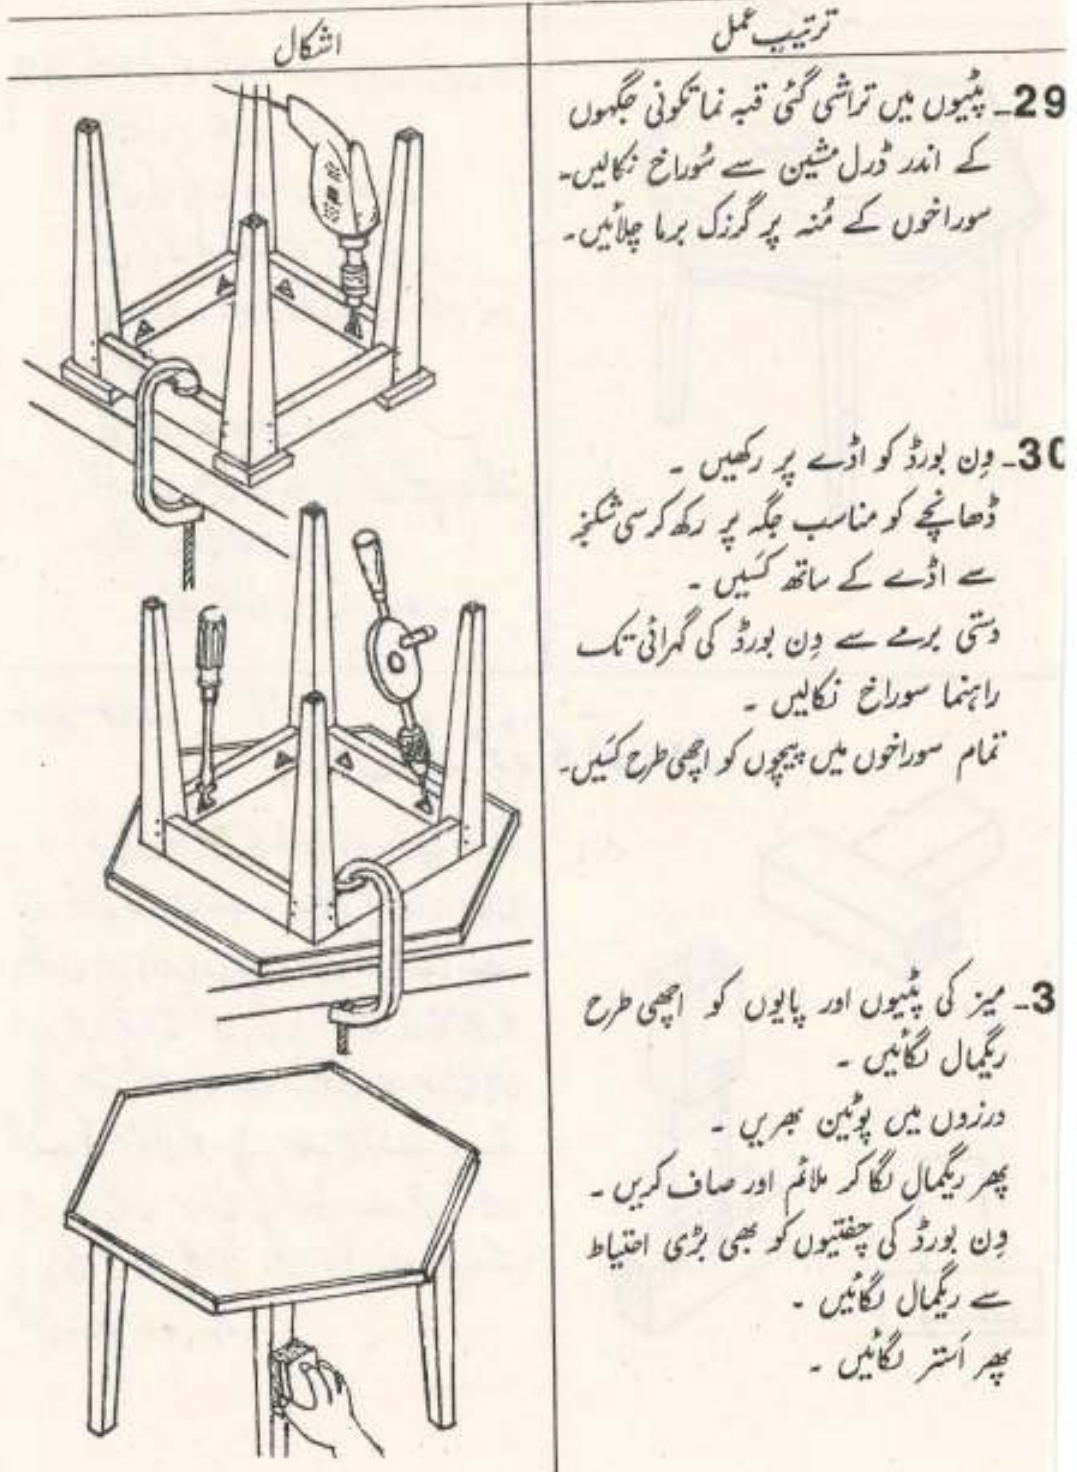 ترتیبِ عمل
اشکال
29۔ پٹیوں میں تراشی گئی قبہ نما تکونی جگہوں
کے اندر ڈرل مشین سے سُوراخ نکالیں۔
سوراخوں کے مُنہ پر گرزک برما چلائیں۔
30۔ وِن بورڈ کو اڈے پر رکھیں ۔
ڈھانچے کو مناسب جگہ پر رکھ کر سی شکنجہ
سے اڈے کے ساتھ کَسیں ۔
دستی برمے سے وِن بورڈ کی گہرائی تک
راہنما سوراخ نکالیں ۔
تمام سوراخوں میں پیچوں کو اچھی طرح کَسیں۔
3۔ میز کی پٹیوں اور پایوں کو اچھی طرح
ریگمال لگائیں ۔
درزوں میں پوٹین بھریں ۔
پھر ریگمال لگا کر ملائم اور صاف کریں ۔
وِن بورڈ کی چفتیوں کو بھی بڑی احتیاط
سے ریگمال لگائیں ۔
پھر اَستر لگائیں ۔